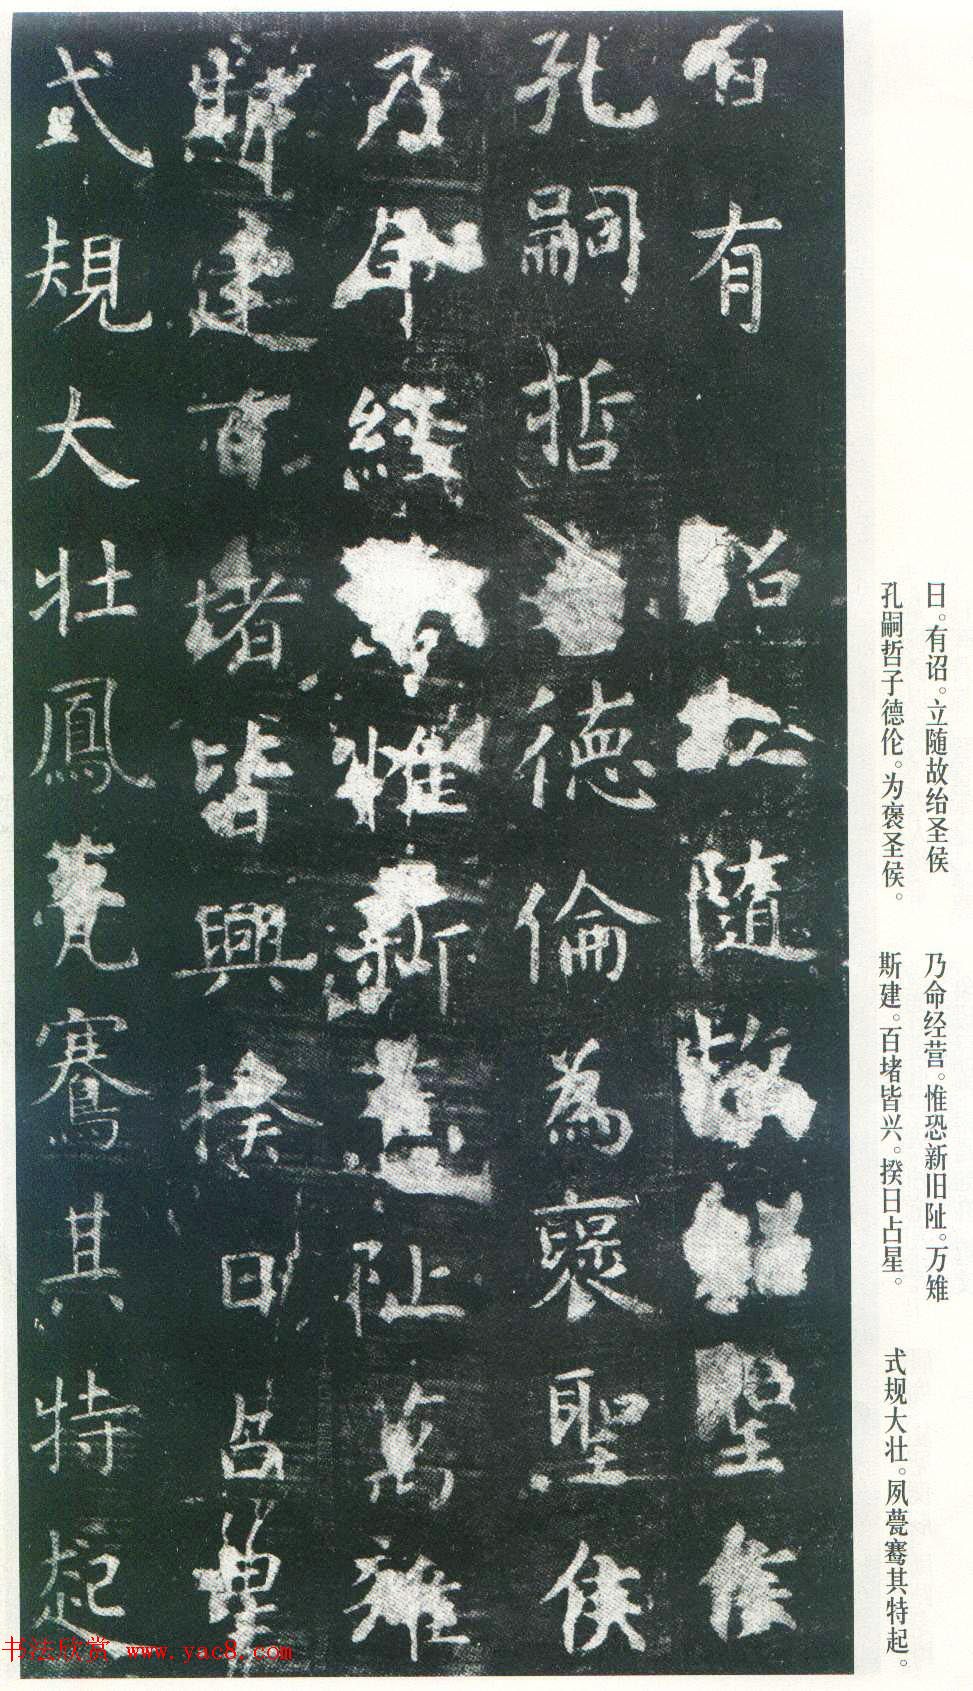 日有詔立隨故紹聖侯
孔嗣哲子德倫為褒聖侯
乃命經營惟新舊阯萬雉
斯建百堵皆興揆日占星
式規大壯鳳甍騫其特起
日。有诏。立随故绐圣侯
孔嗣哲子德伦。为褒圣侯。
乃命经营。惟恐新旧阯。万雉
斯建。百堵皆兴。揆日占星。
式规大壮。夙甍骞其特起。
书法欣赏 www.yac8.com